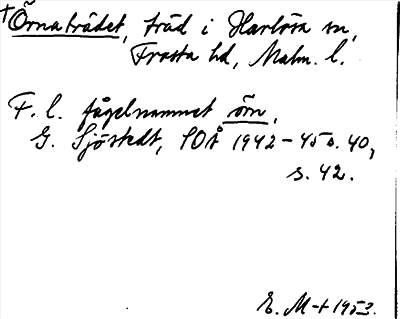 †Örnaträdet, träd i Harlösa sn,
Frosta hd, Malm. l.
F. l. fågelnamnet örn,
G. Sjöstedt, SOÅ 1942-45 s. 40,
s. 42.
E. M-t 1953.